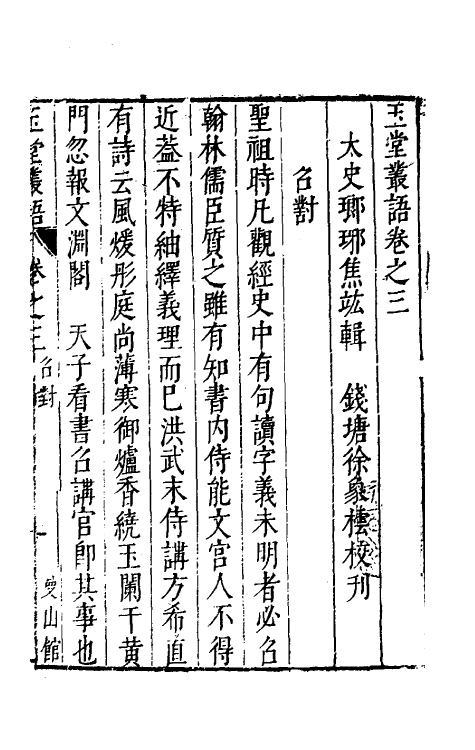 玉堂叢語卷之三
太史瑯琊焦竑輯 錢塘徐象橒校刊
召對
聖祖時凡觀經史中有句讀字義未明者必召
翰林儒臣質之雖有知書內侍能文宮人不得
近葢不特紬繹義理而已洪武末侍講方希直
有詩云風煖彤庭尚薄寒御爐香繞玉闌干黄
門忽報文淵閣 天子看書召講官卽其事也
玉堂叢語 卷之三 召對 一 曼山館